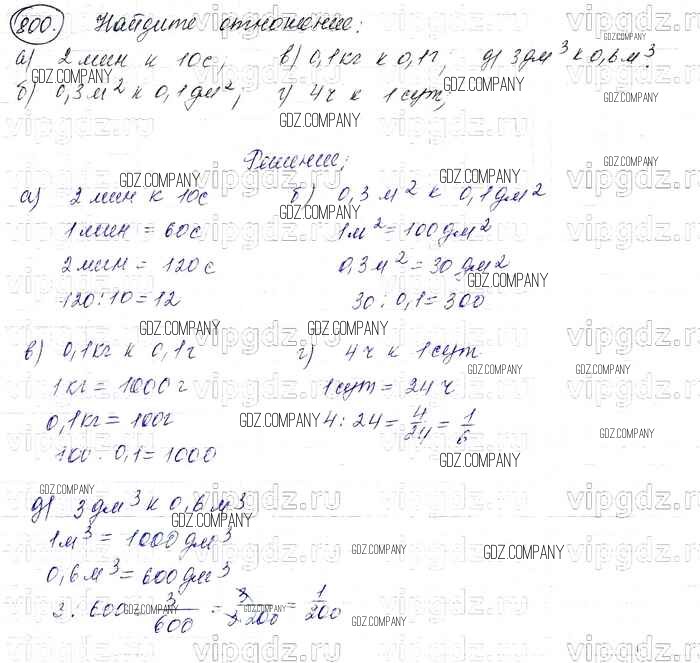 800. Найдите отношение:
а) 2 мин к 10с; в) 0,1кг к 0,1г; д) 3дм³ к 0,6м³.
б) 0,3м² к 0,1дм²; г) 4ч к 1сут;
Решение;
а) 2 мин к 10с
1мин = 60с
2мин = 120с
120:10=12
б) 0,3 м² к 0,1дм²
1м²=100дм²
0,3м²=30дм²
30:0,1=300
в) 0,1кг к 0,1г
1кг=1000г
0,1кг=100г
100:0,1=1000
г) 4ч к 1сут
1сут=24ч
4:24=4/24=1/6
д) 3дм³ к 0,6м³
1м³=1000дм³
0,6м³=600дм³
3:600=3/600=3/3·200=1/200
GDZ.COMPANY
vipgdz.ru